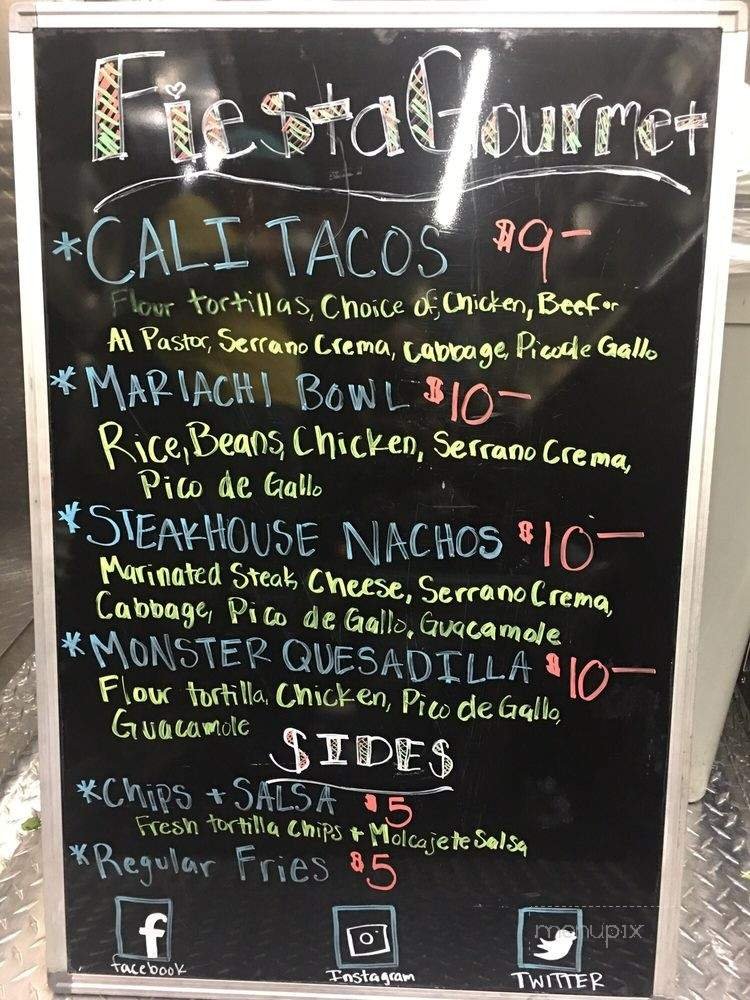 Fiesta Gourmet
*CALI TACOS $9-
Flour tortillas, Choice of, Chicken, Beef or
Al Pastor, Serrano Crema, Cabbage, Pico de Gallo
*MARIACHI BOWL $10-
Rice, Beans, Chicken, Serrano Crema,
Pico de Gallo
*STEAKHOUSE NACHOS $10-
Marinated Steak, Cheese, Serrano Crema,
Cabbage, Pico de Gallo, Guacamole
*MONSTER QUESADILLA $10-
Flour tortilla, Chicken, Pico de Gallo,
Guacamole
SIDES
*Chips + SALSA $5
Fresh tortilla Chips + Molcajete Salsa
*Regular Fries $5
f
menupix
facebook Instagram TWITTER